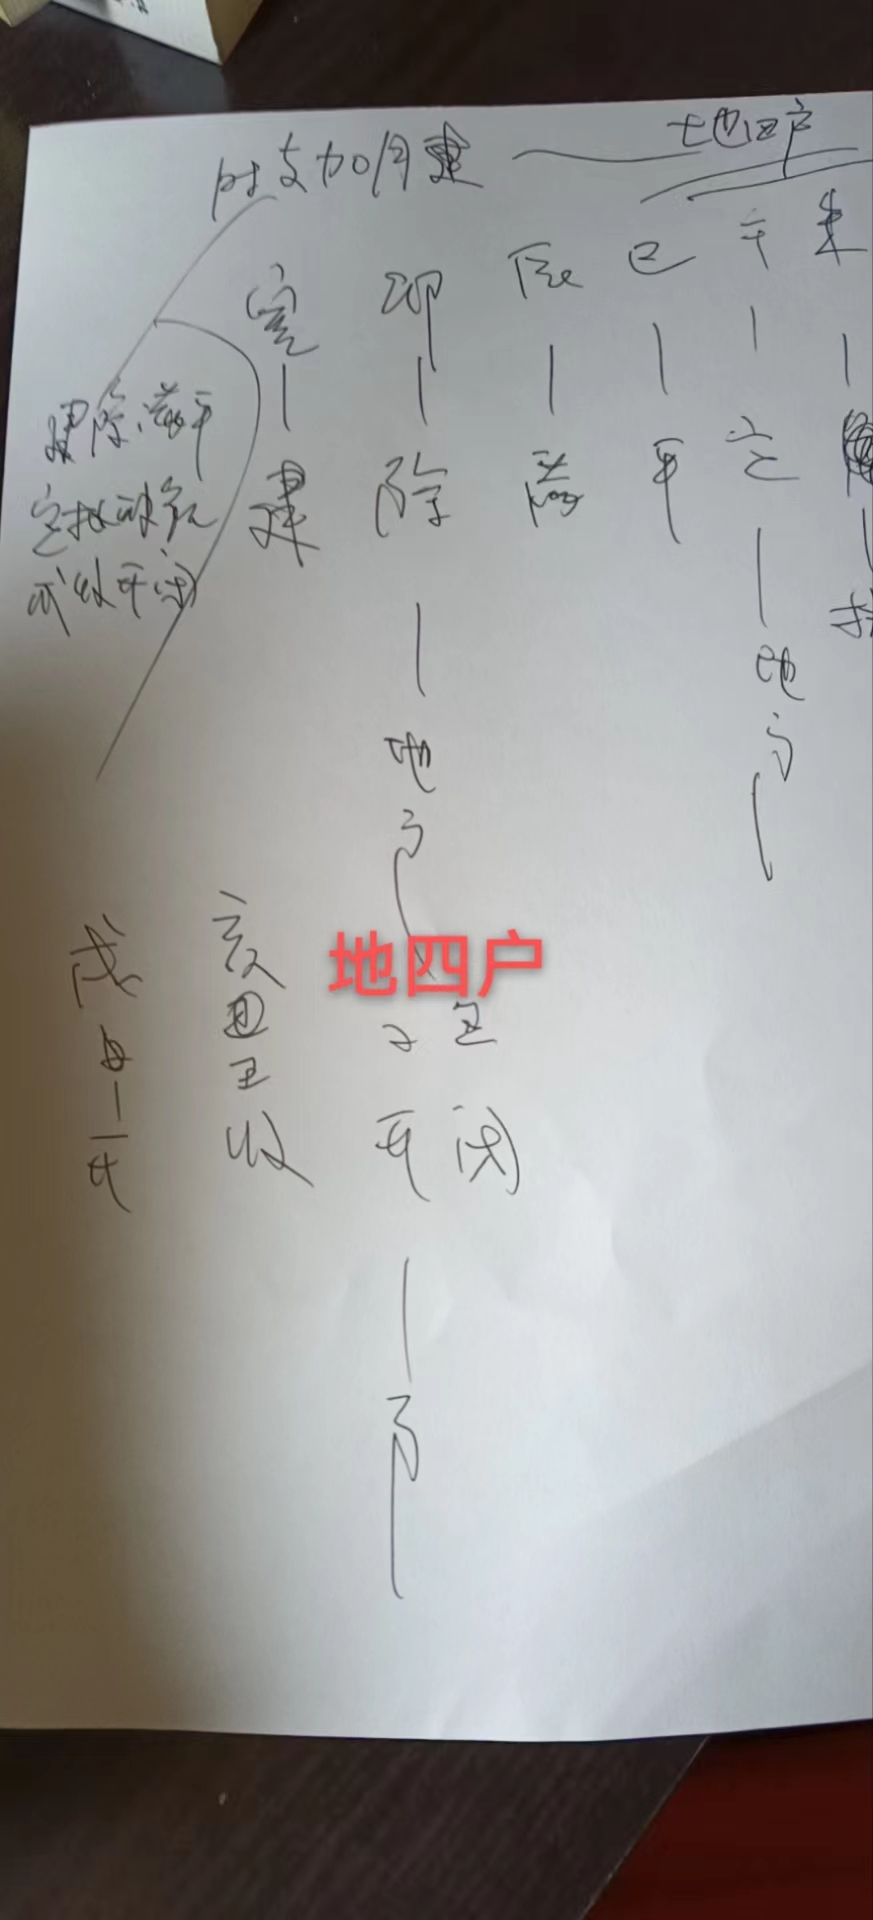 时支加月建 地四户
寅 卯 辰 巳 午 未
建 除 满 平 定 执
建除满平
定执破危
成收开闭
地户 地户
地四户
戌 亥 子 丑
收 开 闭
户